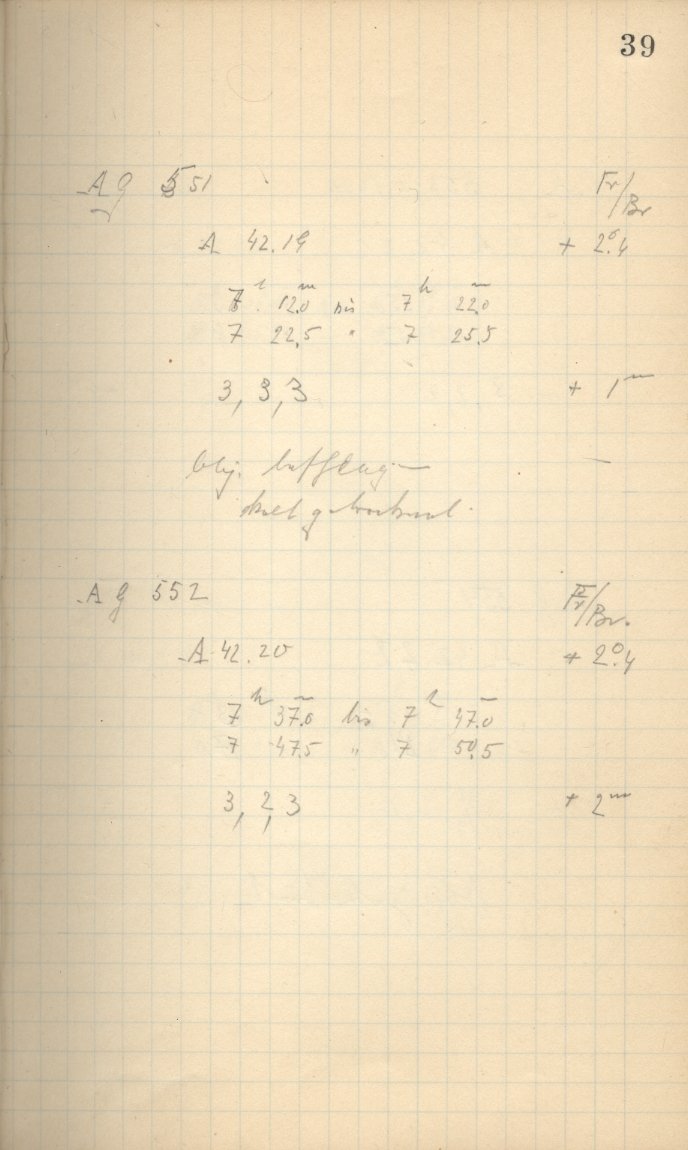 39
A g 551
Fr/Br
A 42.19 + 2°.4
7h 12.0m bis 7h 22.0m
7 22.5 " 7 25.5
3, 3, 3 + 1m
Obj.
A g 552
Fr/Br.
A 42.20 + 2°.4
7h 37.0m bis 7h 47.0m
7 47.5 " 7 50.5
3, 2, 3 + 2m